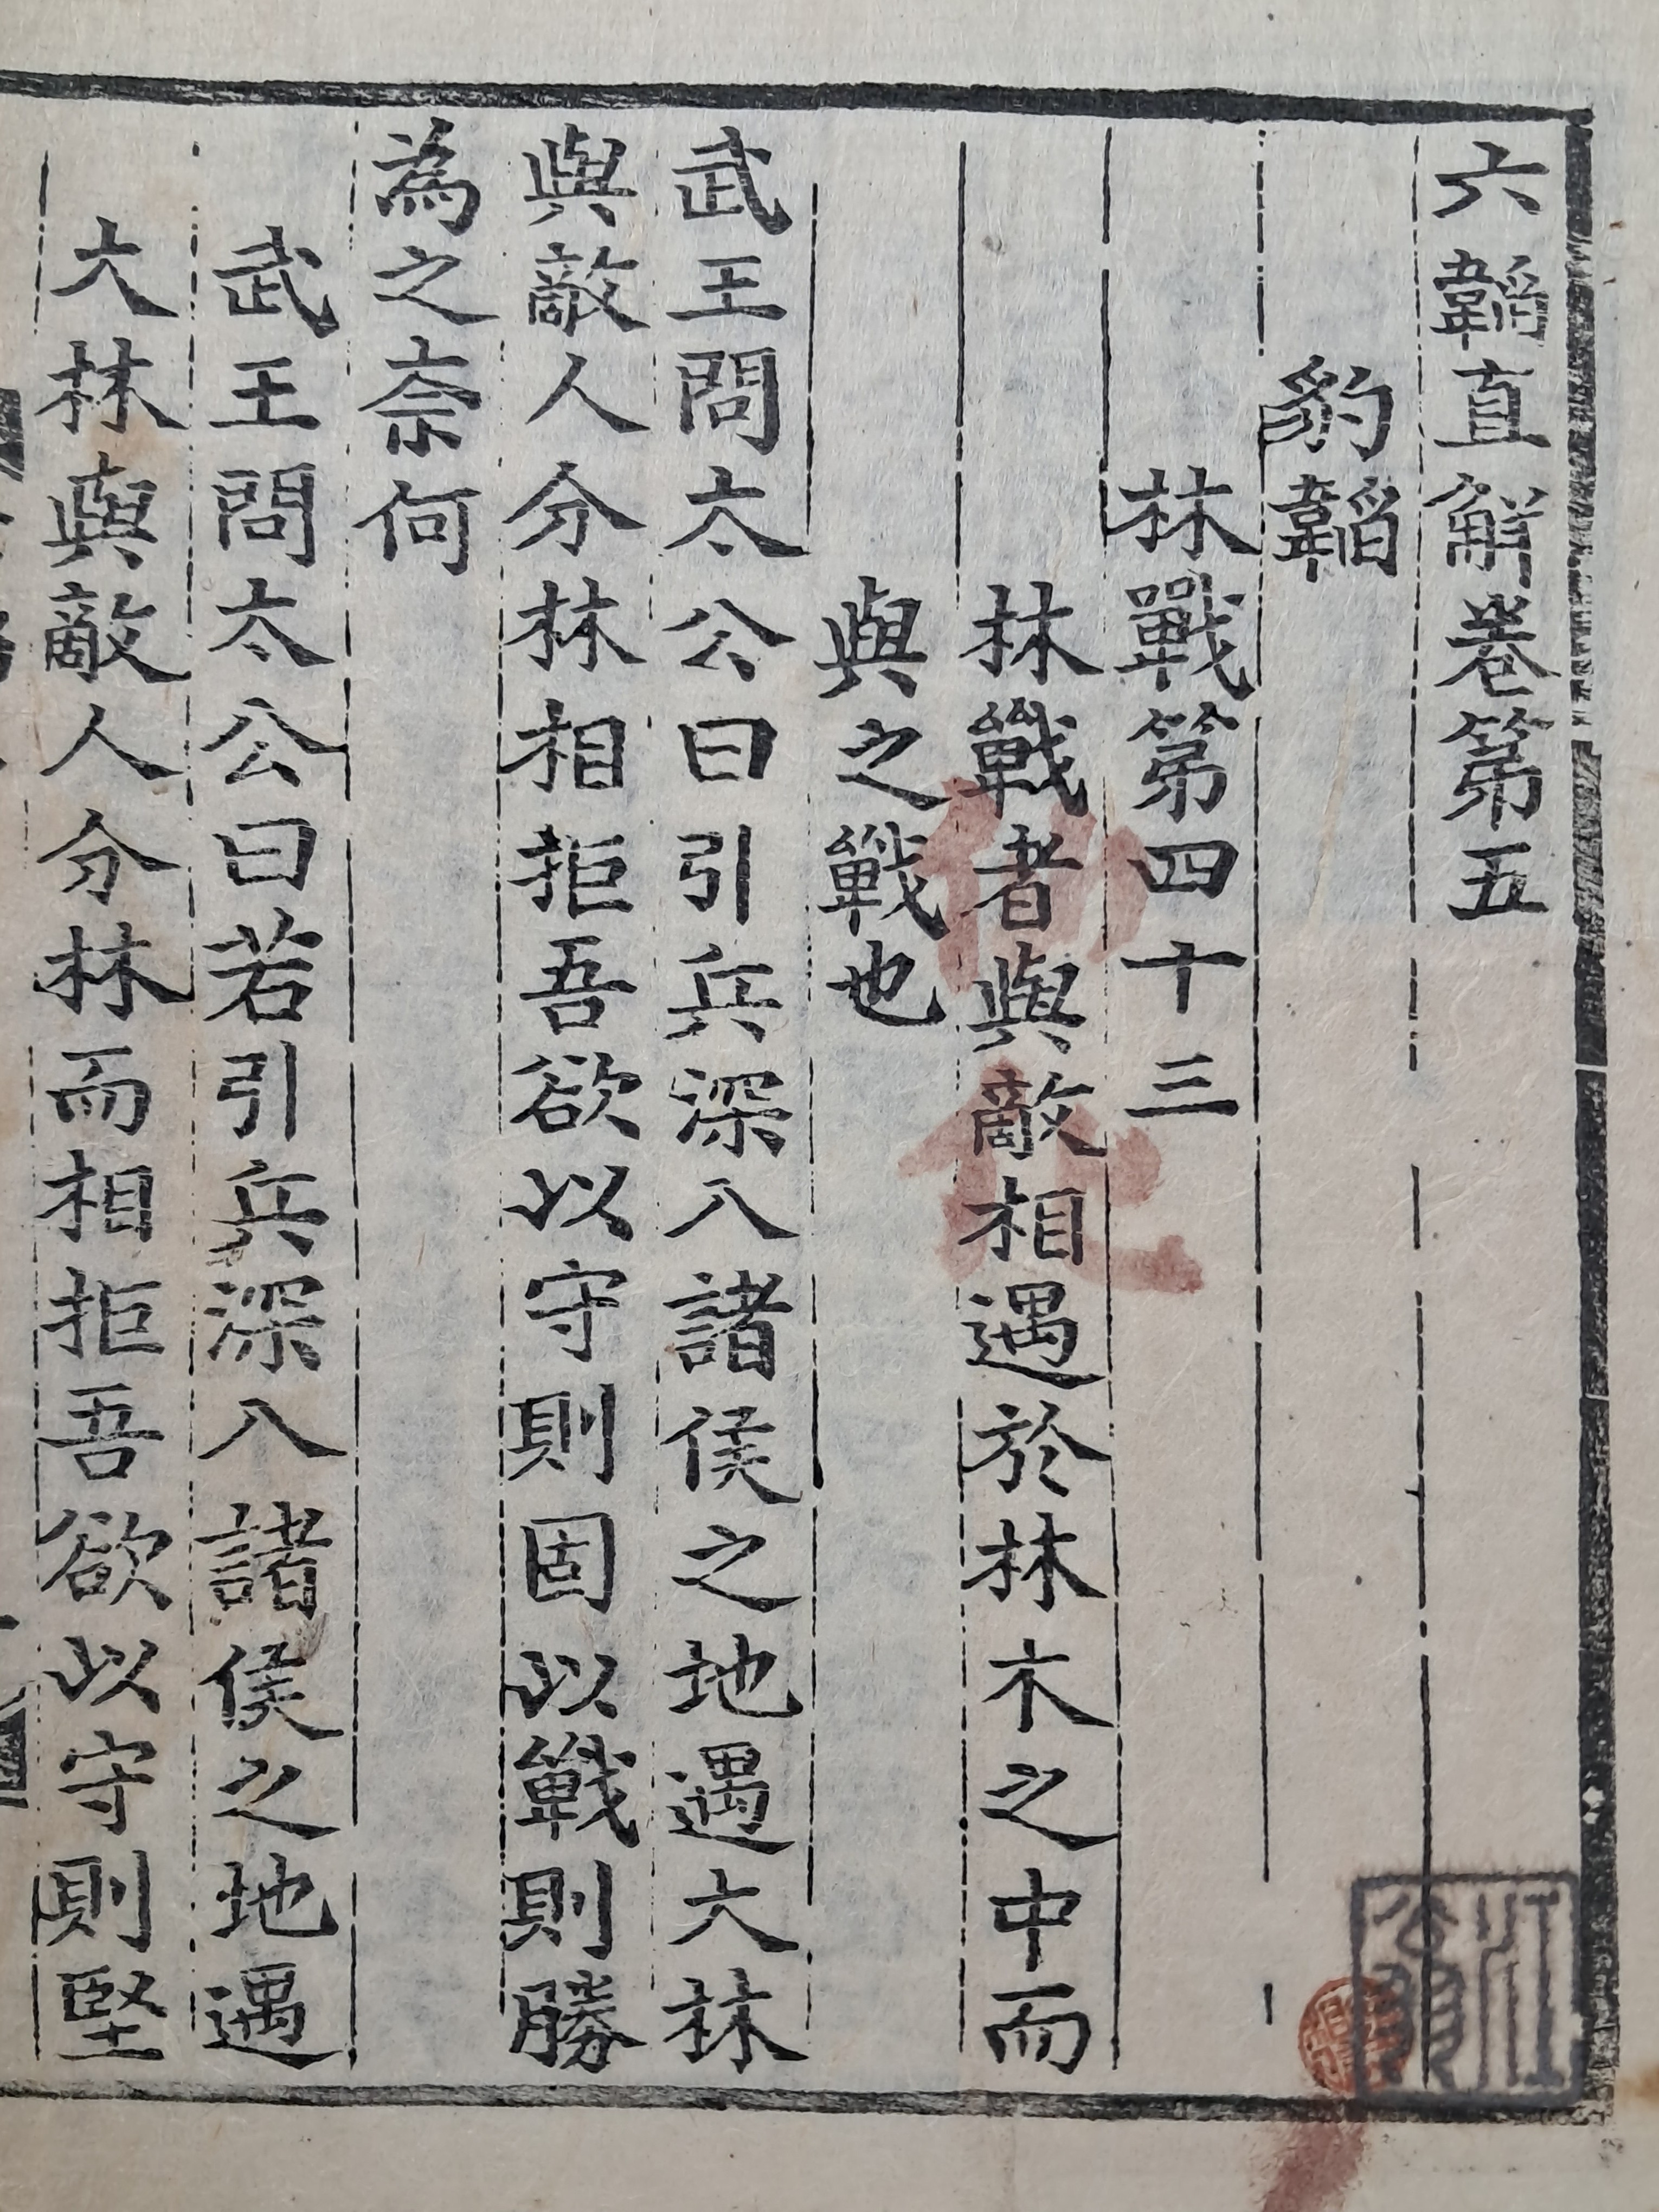 六韜直解卷第五
豹韜
林戰第四十三
林戰者與敵相遇於林木之中而
與之戰也
武王問太公曰引兵深入諸侯之地遇大林
與敵人分林相拒吾欲以守則固以戰則勝
為之奈何
武王問太公曰若引兵深入諸侯之地遇
大林與敵人分林而相拒吾欲以守則堅